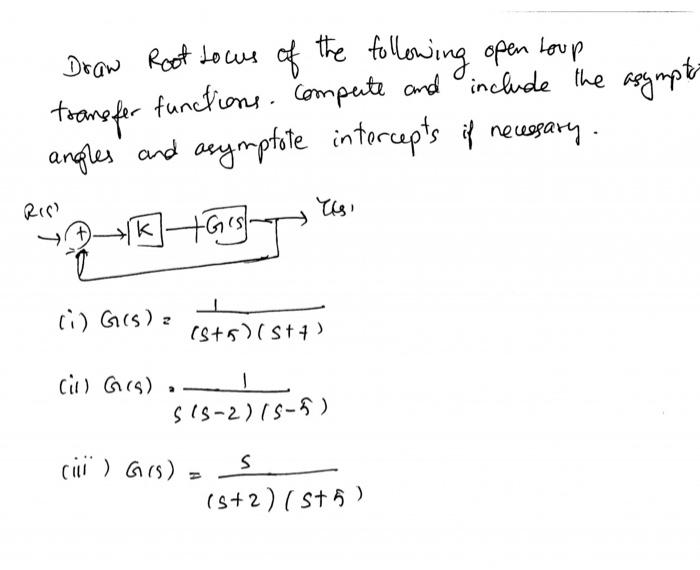 Draw Root Locus of the following open loop
transfer functions. Compute and include the asympt
angles and asymptote intercepts if necessary.
R(s) Y(s)
+ K G(s)
-
(i) G(s) = 1
(s+5)(s+7)
(ii) G(s) = 1
s(s-2)(s-5)
(iii) G(s) = s
(s+2)(s+5)